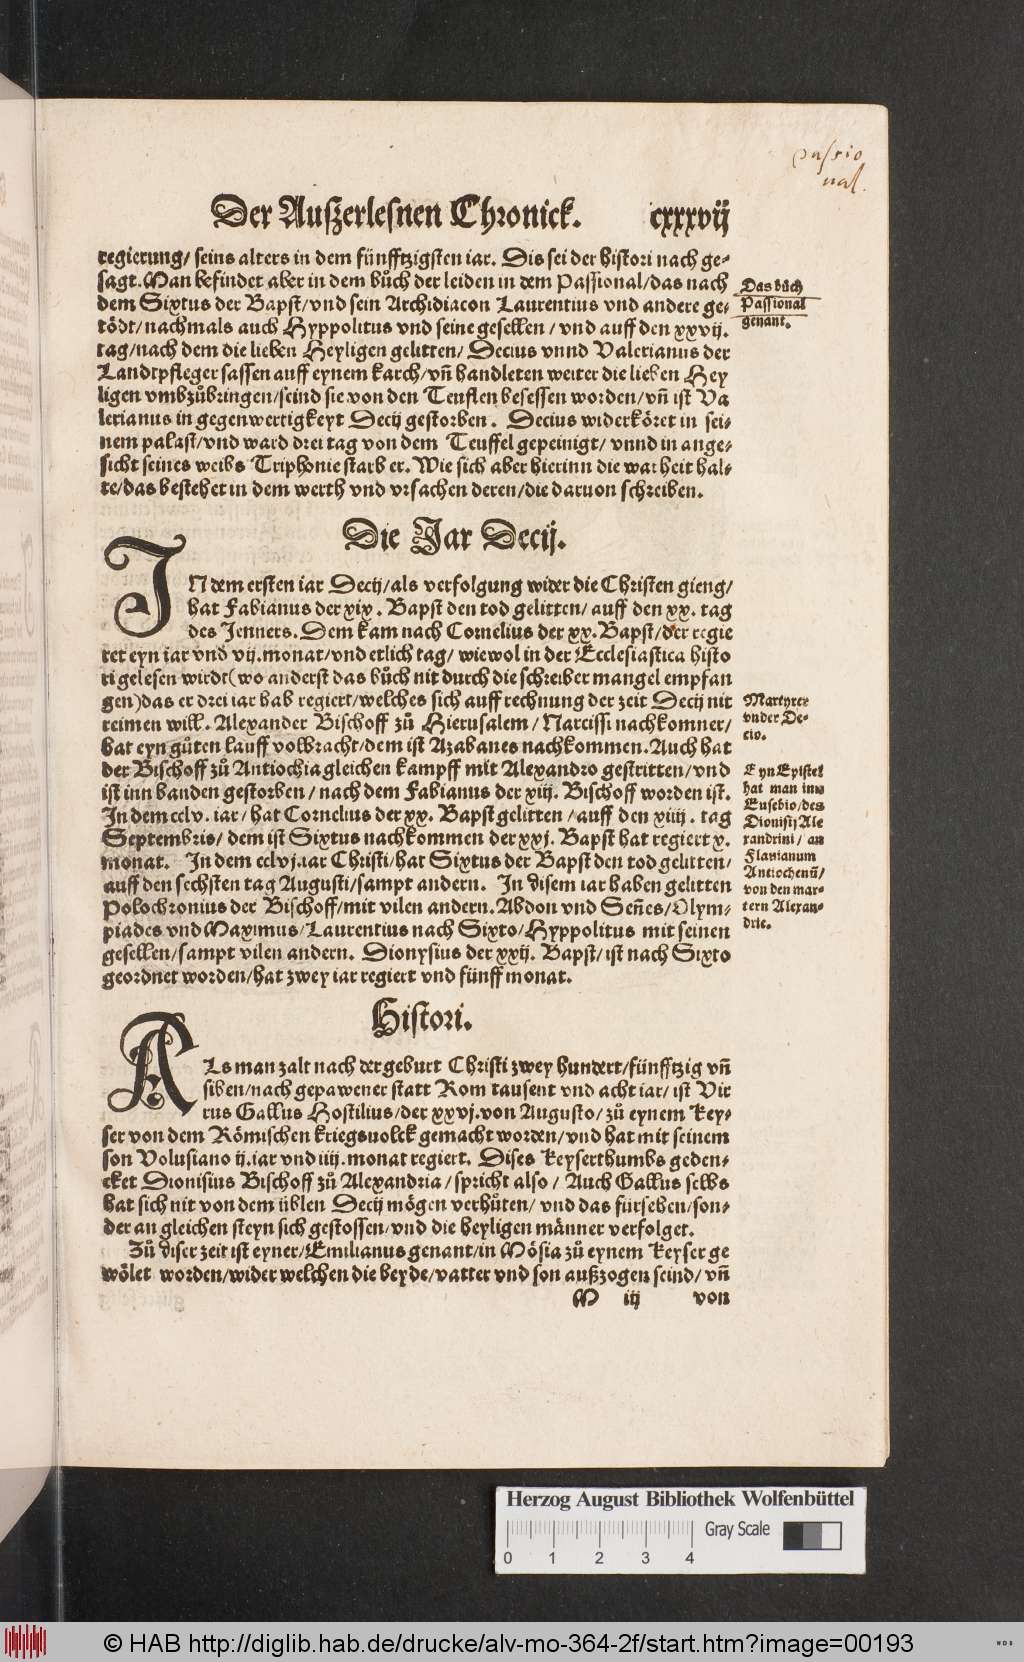 passio
nal.
Der Außerlesnen Chronick. cxxxvij
regierung/ seins alters in dem fünfftzigsten iar. Dis sei der histori nach ge-
sagt. Man befindet aber in dem bůch der leiden in dem Passional/das nach
dem Sixtus der Bapst/vnd sein Archidiacon Laurentius vnd andere ge-
tödt/nachmals auch Hyppolitus vnd seine gesellen/ vnd auff den xxvij.
tag/nach dem die lieben Heyligen gelitten/ Decius vnnd Valerianus der
Landtpfleger sassen auff eynem karch/vñ handleten weiter die lieben Hey
ligen vmbzůbringen/seind sie von den Teuflen besessen worden/vñ ist Va
lerianus in gegenwertigkeyt Decij gestorben. Decius widerköret in sei-
nem palast/vnd ward drei tag von dem Teuffel gepeinigt/ vnnd in ange-
sicht seines weibs Triphonie starb er. Wie sich aber hierinn die warheit hal-
te/das bestehet in dem werth vnd vrsachen deren/die daruon schreiben.
Das bůch
Passional
genant.
Die Jar Decij.
IN dem ersten iar Decij/als verfolgung wider die Christen gieng/
hat Fabianus der xix. Bapst den tod gelitten/ auff den xx. tag
des Jenners. Dem kam nach Cornelius der xx. Bapst/der regie
ret eyn iar vnd vij.monat/vnd etlich tag/ wiewol in der Ecclesiastica histo
ri gelesen wirdt(wo anderst das bůch nit durch die schreiber mangel empfan
gen)das er drei iar hab regiert/welches sich auff rechnung der zeit Decij nit
reimen will. Alexander Bischoff zů Hierusalem/ Narcissi nachkomner/
hat eyn gůten lauff volbracht/dem ist Azabanes nachkommen. Auch hat
der Bischoff zů Antiochia gleichen kampff mit Alexandro gestritten/vnd
ist inn banden gestorben/ nach dem Fabianus der xij. Bischoff worden ist.
In dem cclv. iar/ hat Cornelius der xx. Bapst gelitten/auff den xiiij. tag
Septembris/ dem ist Sixtus nachkommen der xxj. Bapst hat regiert x.
monat. In dem cclvj.iar Christi/hat Sixtus der Bapst den tod gelitten/
auff den sechsten tag Augusti/sampt andern. In disem iar haben gelitten
Polochronius der Bischoff/mit vilen andern. Abdon vnd Señes/Olym-
piades vnd Maximus/Laurentius nach Sixto/Hyppolitus mit seinen
gesellen/sampt vilen andern. Dionysius der xxij. Bapst/ist nach Sixto
geordnet worden/hat zwey iar regiert vnd fünff monat.
Martyrer
vnder De-
cio.
Eyn Epistel
hat man inn
Eusebio/des
Dionisij Ale
xandrini/ an
Flauianum
Antiochenũ/
von den mar-
tern Alexan-
drie.
Histori.
ALs man zalt nach der geburt Christi zwey hundert/fünfftzig vñ
siben/nach gepawener statt Rom tausent vnd acht iar/ ist Vir
rus Gallus Hostilius/der xxvj.von Augusto/ zů eynem Key-
ser von dem Römischen kriegsuolck gemacht worden/vnd hat mit seinem
son Volusiano ij.iar vnd iiij.monat regiert. Dises Keyserthumbs geden-
cket Dionisius Bischoff zů Alexandria/spricht also/ Auch Gallus selbs
hat sich nit von dem üblen Decij mögen verhüten/ vnd das fürsehen/son-
der an gleichen steyn sich gestossen/vnd die heyligen männer verfolget.
Zů diser zeit ist eyner/Emilianus genant/in Mösia zů eynem Keyser ge
wölet worden/wider welchen die beyde/vatter vnd son außzogen seind/ vñ
M iij von
Herzog August Bibliothek Wolfenbüttel
Gray Scale
0 1 2 3 4
© HAB http://diglib.hab.de/drucke/alv-mo-364-2f/start.htm?image=00193